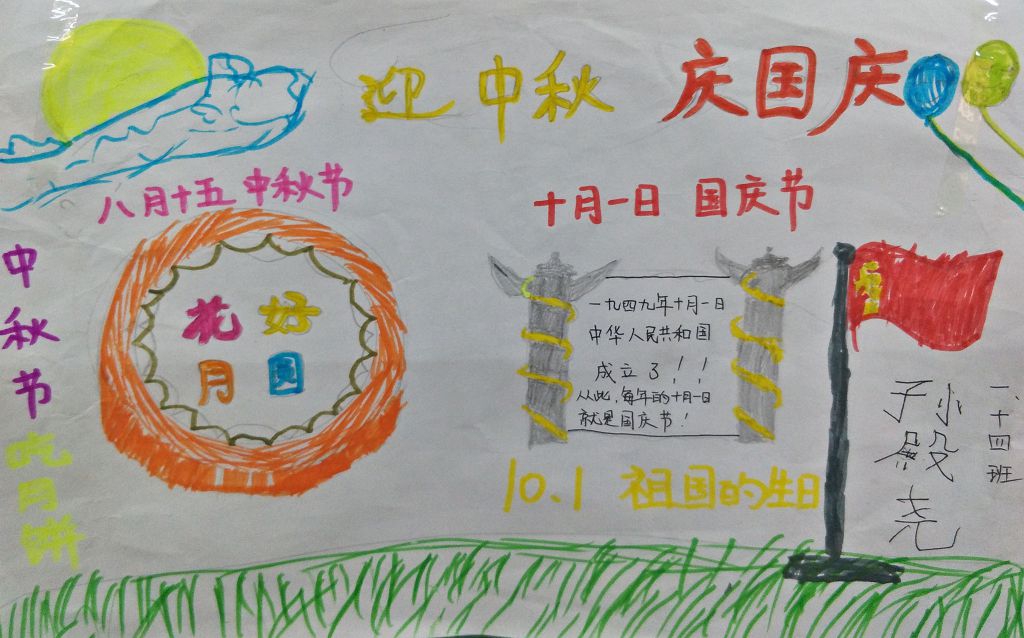 迎中秋 庆国庆
八月十五 中秋节
十月一日 国庆节
中秋节吃月饼
花好
月圆
一九四九年十月一日
中华人民共和国
成立了！！
从此，每年的十月一日
就是国庆节！
10.1 祖国的生日
一、十四班
孙殿尧